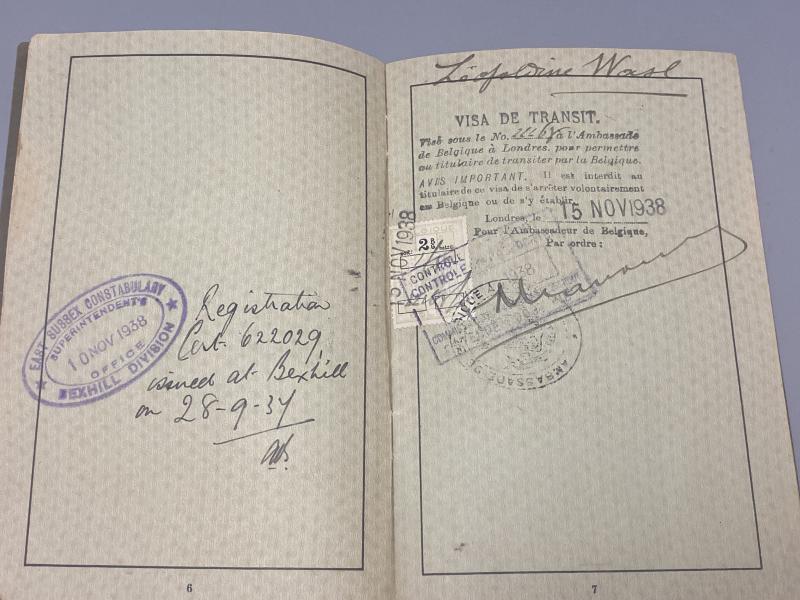 EAST SUSSEX CONSTABULARY
SUPERINTENDENT'S
10 NOV 1938
OFFICE
BEXHILL DIVISION
Registration
Cert. 622029
issued at Bexhill
on 28-9-37
6
Léopoldine Wasl
VISA DE TRANSIT.
Visé sous le No. à l'Ambassade
de Belgique à Londres, pour permettre
au titulaire de transiter par la Belgique.
AVIS IMPORTANT. Il est interdit au
titulaire de ce visa de s'arrêter volontairement
en Belgique ou de s'y établir.
Londres, le 15 NOV 1938
Pour l'Ambassadeur de Belgique,
Par ordre:
15 NOV 1938
2
CONTROLE
CONTROLE
1938
AMBASSADE
7